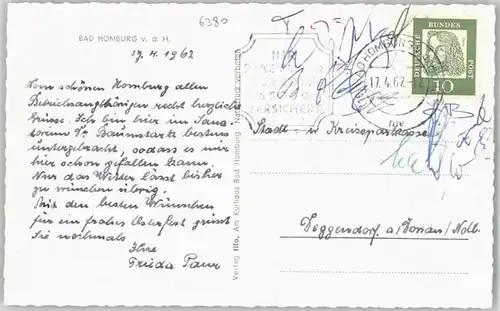 6380
BAD HOMBURG v. d. H.
17. 4. 1962
Vom schönen Homburg allen
Betriebsangehörigen recht herzliche
Grüsse. Ich bin hier im Sana-
torium Dr. Baumstark bestens
untergebracht, sodass es mir
hier schon gefallen kann.
Nur das Wetter lässt bisher
zu wünschen übrig.
Mit den besten Wünschen
für ein frohes Osterfest grüsst
Sie nochmals
Ihre
Frieda
Verlag Ilo, Am Kurhaus Bad Homburg
BAD HOMBURG
17.4.62
DEUTSCHE BUNDES POST
10
An
Stadt- u. Kreissparkasse
Deggendorf a/Donau/Ndb.